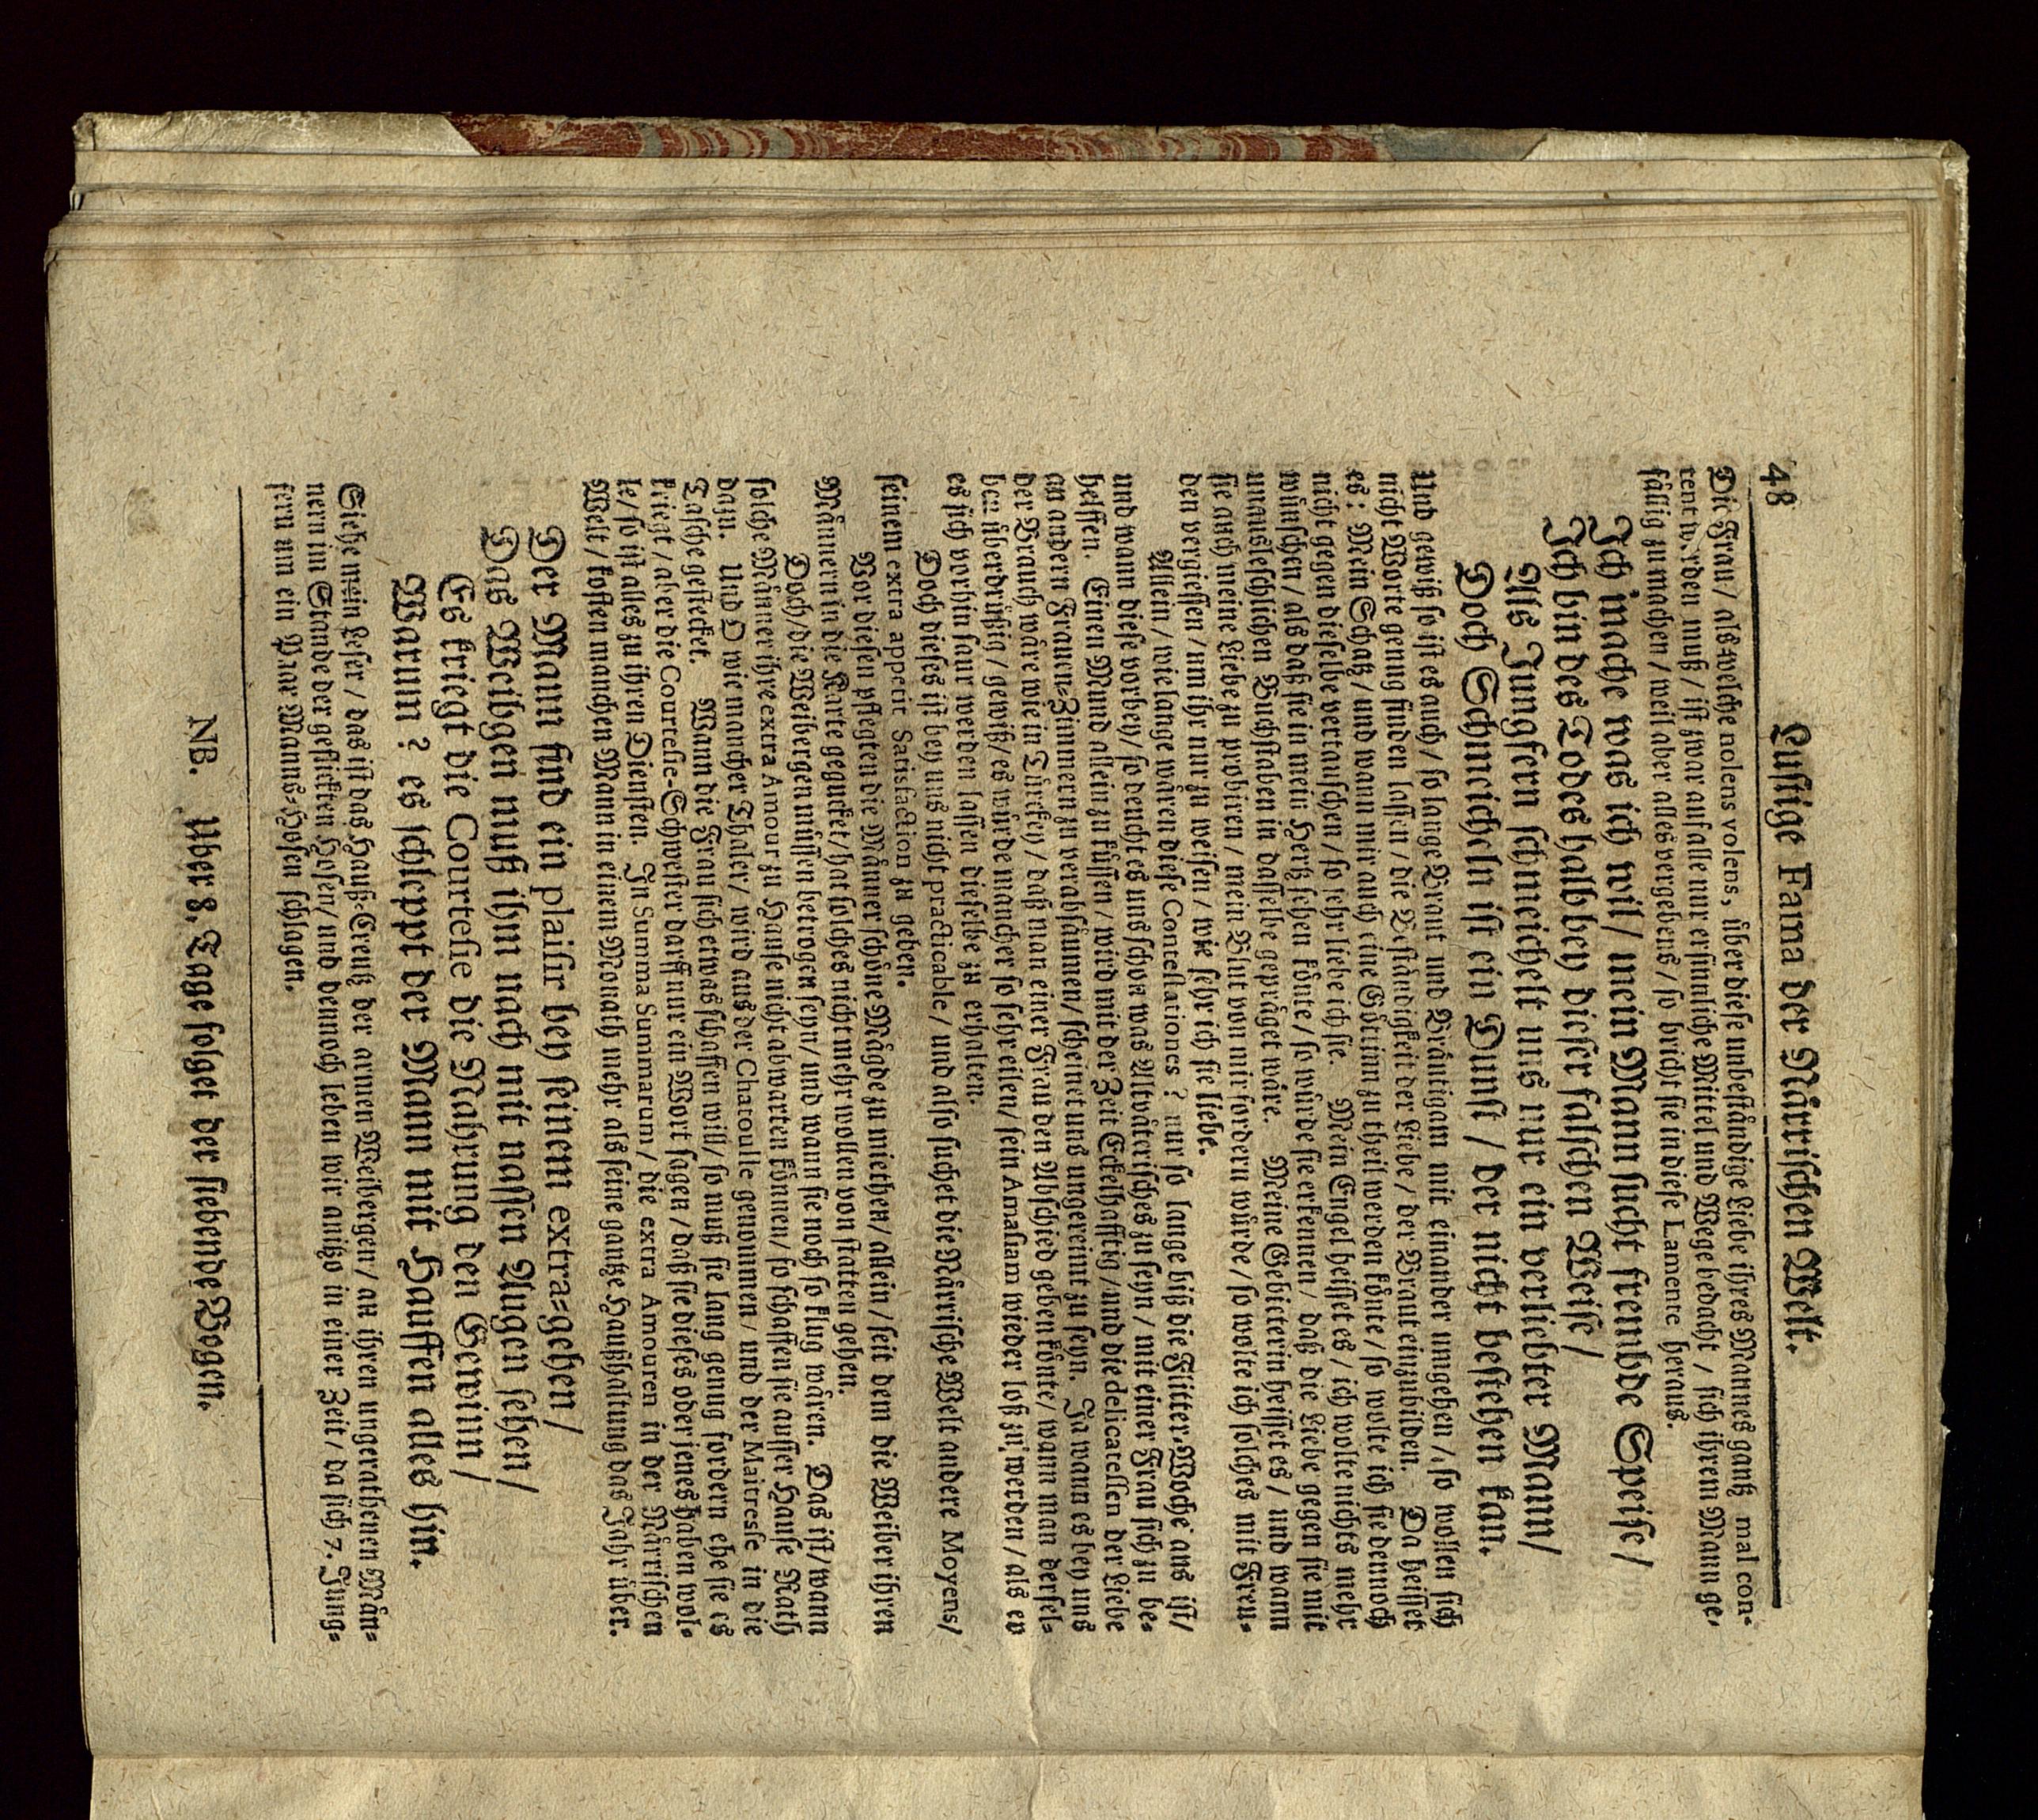 48 Lustige Fama der Närrischen Welt.
Die Frau/ als welche nolens volens, über diese unbeständige Liebe ihres Mannes gantz mal con-
tent werden muß / ist zwar auf alle nur ersinnliche Mittel und Wege bedacht / sich ihrem Mann ge-
fällig zu machen / weil aber alles vergebens / so bricht sie in diese Lamente heraus.
Ich mache was ich wil / mein Mann sucht frembde Speise /
Ich bin des Todes halb bey dieser falschen Weise /
Als Jungfern schmeichelt uns nur ein verliebter Mann /
Doch Schmeicheln ist ein Dunst / der nicht bestehen kan.
Und gewiß so ist es auch / so lange Braut und Bräutigam mit einander umgehen / so wollen sich
nicht Worte genug finden lassen / die Beständigkeit der Liebe / der Braut einzubilden. Da heisset
es: Mein Schatz / und wann mir auch eine Göttinn zu theil werden könte / so wolte ich sie dennoch
nicht gegen dieselbe vertauschen / so sehr liebe ich sie. Mein Engel heisset es / ich wolte nichts mehr
wünschen / als daß sie in mein Hertz sehen könte / so würde sie erkennen / daß die Liebe gegen sie mit
unauslefchlichen Buchstaben in dasselbe gepräget wäre. Meine Gebieterin heisset es / und wann
sie auch meine Liebe zu probiren / mein Blut von mir fordern würde / so wolte ich solches mit Freu-
den vergiessen / um ihr nur zu weisen / wie sehr ich sie liebe.
Allein / wie lange wären diese Contestationes ? nur so lange biß die Flitter-Woche aus ist /
und wann diese vorbey / so deucht es uns schon was Altväterisches zu seyn / mit einer Frau sich zu be-
helffen. Einen Mund allein zu küssen / wird mit der Zeit Eckelhafftig / und die delicatessen der Liebe
an andern Frauen-Zimmern zu verabsäumen / scheinet uns ungereimt zu seyn. Ja wann es bey uns
der Brauch wäre wie in Türckey / daß man einer Frau den Abschied geben könte / wann man dersel-
ben überdrüßig / gewiß / es würde mancher so sehr eilen / sein Amasiam wieder loß zu werden / als er
es sich vorhin saur werden lassen dieselbe zu erhalten.
Doch dieses ist bey uns nicht practicable / und also suchet die Närrische Welt andere Moyens /
seinem extra appetit Satisfaction zu geben.
Vor diesen pflegten die Männer schöne Mägde zu miethen / allein / seit dem die Weiber ihren
Männern in die Karte gegucket / hat solches nicht mehr wollen von statten gehen.
Doch / die Weibergen müssen betrogen seyn / und wann sie noch so klug wären. Das ist / wann
solche Männer ihre extra Amour zu Hause nicht abwarten können / so schaffen sie ausser Hause Rath
dazu. Und O wie mancher Thaler / wird aus der Chatoulle genommen / und der Maitresse in die
Tasche gestecket. Wann die Frau sich etwas schaffen will / so muß sie lang genug fordern ehe sie es
kriegt / aber die Courtesie-Schwester darff nur ein Wort sagen / daß sie dieses oder jenes haben wol-
le / so ist alles zu ihren Diensten. In Summa Summarum / die extra Amouren in der Närrischen
Welt / kosten manchen Mann in einem Monath mehr als seine gantze Haußhaltung das Jahr über.
Der Mann find ein plaisir bey seinem extra-gehen /
Das Weibgen muß ihm nach mit nassen Augen sehen /
Es kriegt die Courtesie die Nahrung den Gewinn /
Warum ? es schleppt der Mann mit Hauffen alles hin.
Siehe mein Leser / das ist das Hauß-Creutz der armen Weibergen / an ihren ungerathenen Män-
nern in Stande der geflickten Hosen / und dennoch leben wir anitzo in einer Zeit / da sich 7. Jung-
fern um ein Paar Manns-Hosen schlagen.
NB. Uber 8. Tage folget der siebende Bogen.